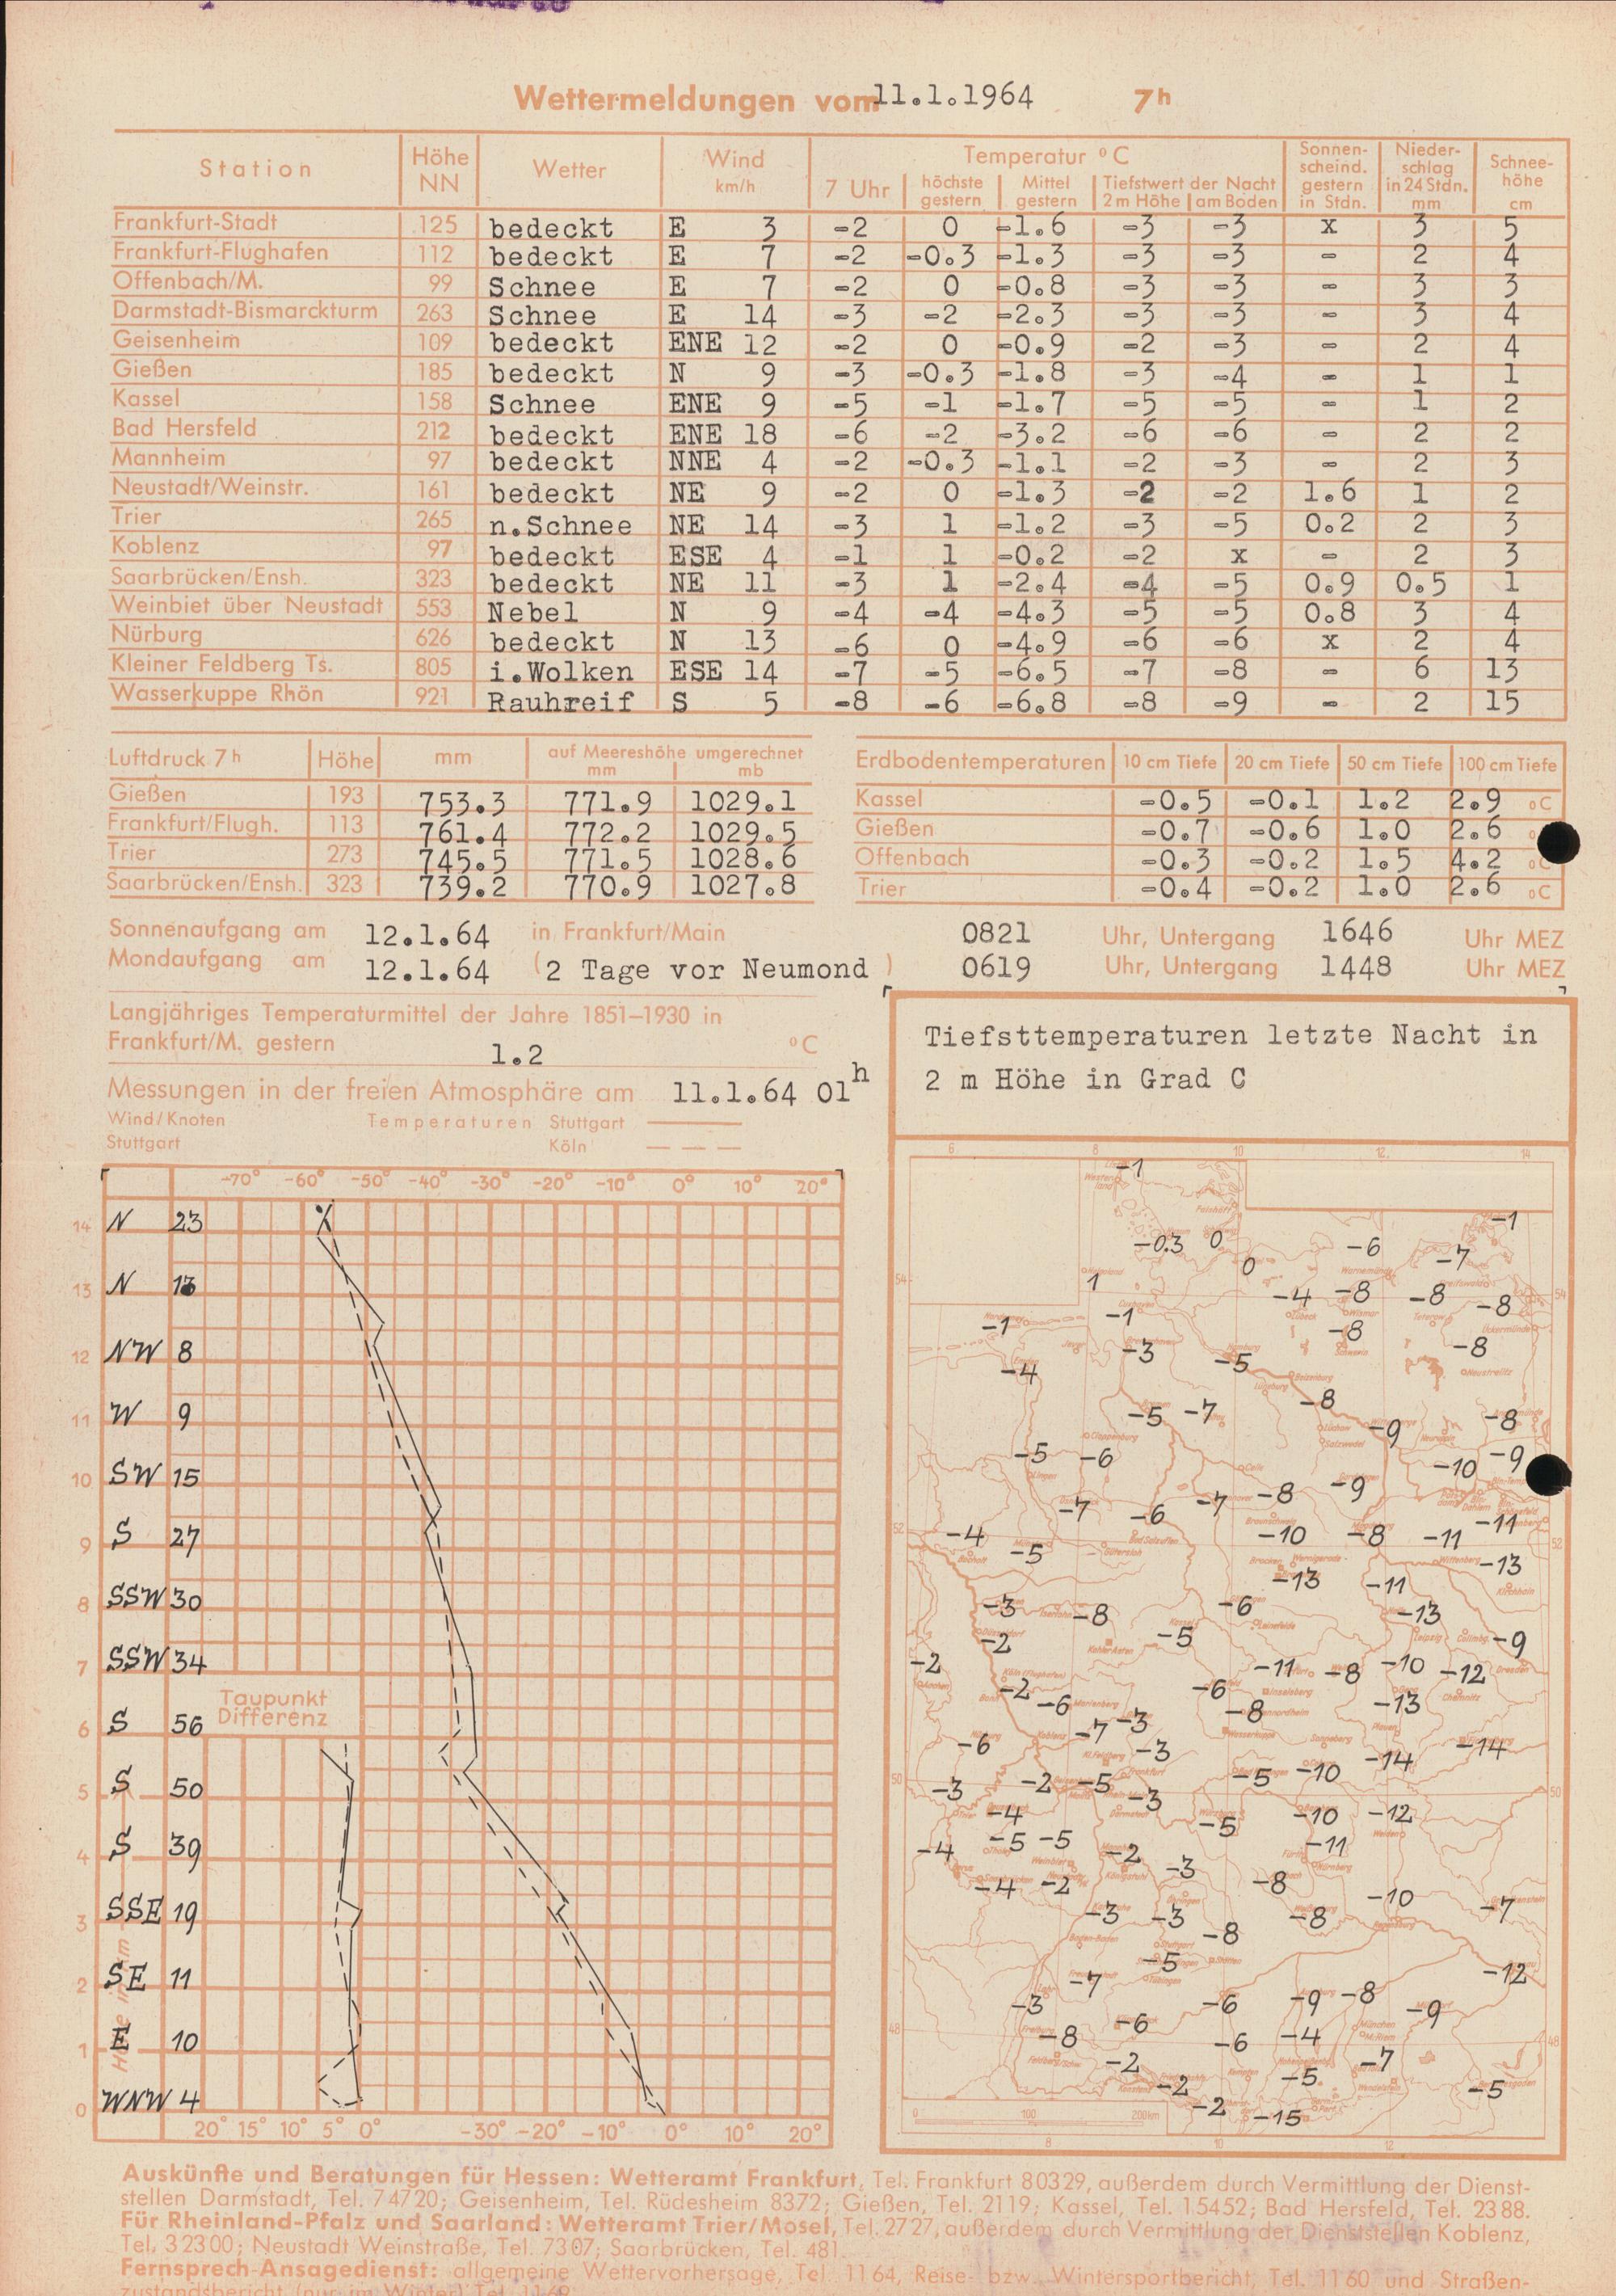 Wettermeldungen vom 11.1.1964 7h
Station Höhe NN Wetter Wind km/h Temperatur °C Sonnenscheind. gestern in Stdn. Niederschlag in 24 Stdn. mm Schneehöhe cm
7 Uhr höchste gestern Mittel gestern Tiefstwert der Nacht 2 m Höhe am Boden
Frankfurt-Stadt 125 bedeckt E 3 -2 0 -1.6 -3 -3 x 3 5
Frankfurt-Flughafen 112 bedeckt E 7 -2 -0.3 -1.3 -3 -3 - 2 4
Offenbach/M. 99 Schnee E 7 -2 0 -0.8 -3 -3 - 3 3
Darmstadt-Bismarckturm 263 Schnee E 14 -3 -2 -2.3 -3 -3 - 3 4
Geisenheim 109 bedeckt ENE 12 -2 0 -0.9 -2 -3 - 2 4
Gießen 185 bedeckt N 9 -3 -0.3 -1.8 -3 -4 - 1 1
Kassel 158 Schnee ENE 9 -5 -1 -1.7 -5 -5 - 1 2
Bad Hersfeld 212 bedeckt ENE 18 -6 -2 -3.2 -6 -6 - 2 2
Mannheim 97 bedeckt NNE 4 -2 -0.3 -1.1 -2 -3 - 2 3
Neustadt/Weinstr. 161 bedeckt NE 9 -2 0 -1.3 -2 -2 1.6 1 2
Trier 265 n.Schnee NE 14 -3 1 -1.2 -3 -5 0.2 2 3
Koblenz 97 bedeckt ESE 4 -1 1 -0.2 -2 x - 2 3
Saarbrücken/Ensh. 323 bedeckt NE 11 -3 1 -2.4 -4 -5 0.9 0.5 1
Weinbiet über Neustadt 553 Nebel N 9 -4 -4 -4.3 -5 -5 0.8 3 4
Nürburg 626 bedeckt N 13 -6 0 -4.9 -6 -6 x 2 4
Kleiner Feldberg Ts. 805 i.Wolken ESE 14 -7 -5 -6.5 -7 -8 - 6 13
Wasserkuppe Rhön 921 Rauhreif S 5 -8 -6 -6.8 -8 -9 - 2 15
Luftdruck 7h Höhe mm auf Meereshöhe umgerechnet mm mb
Gießen 193 753.3 771.9 1029.1
Frankfurt/Flugh. 113 761.4 772.2 1029.5
Trier 273 745.5 771.5 1028.6
Saarbrücken/Ensh. 323 739.2 770.9 1027.8
Erdbodentemperaturen 10 cm Tiefe 20 cm Tiefe 50 cm Tiefe 100 cm Tiefe
Kassel -0.5 -0.1 1.2 2.9 °C
Gießen -0.7 -0.6 1.0 2.6
Offenbach -0.3 -0.2 1.5 4.2 °C
Trier -0.4 -0.2 1.0 2.6 °C
Sonnenaufgang am 12.1.64 in Frankfurt/Main 0821 Uhr, Untergang 1646 Uhr MEZ
Mondaufgang am 12.1.64 (2 Tage vor Neumond) 0619 Uhr, Untergang 1448 Uhr MEZ
Langjähriges Temperaturmittel der Jahre 1851–1930 in
Frankfurt/M. gestern 1.2 °C
Messungen in der freien Atmosphäre am 11.1.64 01h
Wind/Knoten Temperaturen Stuttgart
Stuttgart Köln
-70° -60° -50° -40° -30° -20° -10° 0° 10° 20°
14 N 23
13 N 13
12 NW 8
11 W 9
10 SW 15
9 S 27
8 SSW 30
7 SSW 34
Taupunkt
Differenz
6 S 56
5 S 50
4 S 39
3 SSE 19
2 SE 11
1 E 10
0 WNW 4
20° 15° 10° 5° 0° -30° -20° -10° 0° 10° 20°
Tiefsttemperaturen letzte Nacht in
2 m Höhe in Grad C
6 8 10 12 14
-1
-1
-0.3 0 -6
0 -7
1 -4 -8 -8 -8
-1 -1 -8
-3 -5 -8
-4
-8
-5 -7 -9 -8
-5 -6 -10 -9
-7 -6 -7 -8 -9
-4 -5 -10 -8 -11 -11
-13 -11 -13
-3 -8 -6 -13
-2 -5 -9
-2 -11 -8 -10 -12
-2 -6 -6 -8 -13
-7 -3
-6 -3 -14 -14
-3 -2 -5 -3 -5 -10
-4 -5 -10 -12
-4 -5 -5 -2 -11
-4 -2 -3 -8 -10
-3 -3 -8 -8 -7
-5 -12
-7
-3 -6 -9 -8 -9
-8 -6 -6 -4
-2 -7
-2 -5 -5
-2 -15
0 100 200km
8 10 12
Auskünfte und Beratungen für Hessen: Wetteramt Frankfurt, Tel. Frankfurt 80329, außerdem durch Vermittlung der Dienst-
stellen Darmstadt, Tel. 74720; Geisenheim, Tel. Rüdesheim 8372; Gießen, Tel. 2119; Kassel, Tel. 15452; Bad Hersfeld, Tel. 2388.
Für Rheinland-Pfalz und Saarland: Wetteramt Trier/Mosel, Tel. 2727, außerdem durch Vermittlung der Dienststellen Koblenz,
Tel. 32300; Neustadt Weinstraße, Tel. 7307; Saarbrücken, Tel. 481.
Fernsprech-Ansagedienst: allgemeine Wettervorhersage, Tel. 1164, Reise- bzw. Wintersportbericht, Tel. 1160 und Straßen-
zustandsbericht (nur im Winter) Tel. 1169